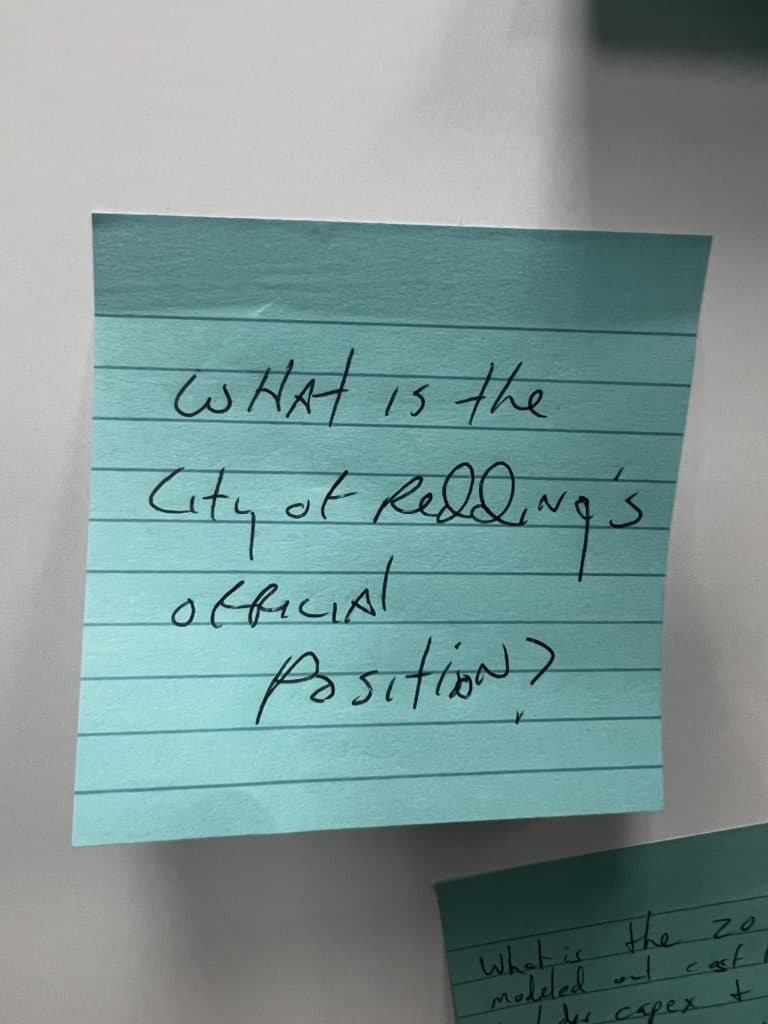 WHAt is the
City of Redding's
official
Position?
What is the 20
modeled out cost
capex +